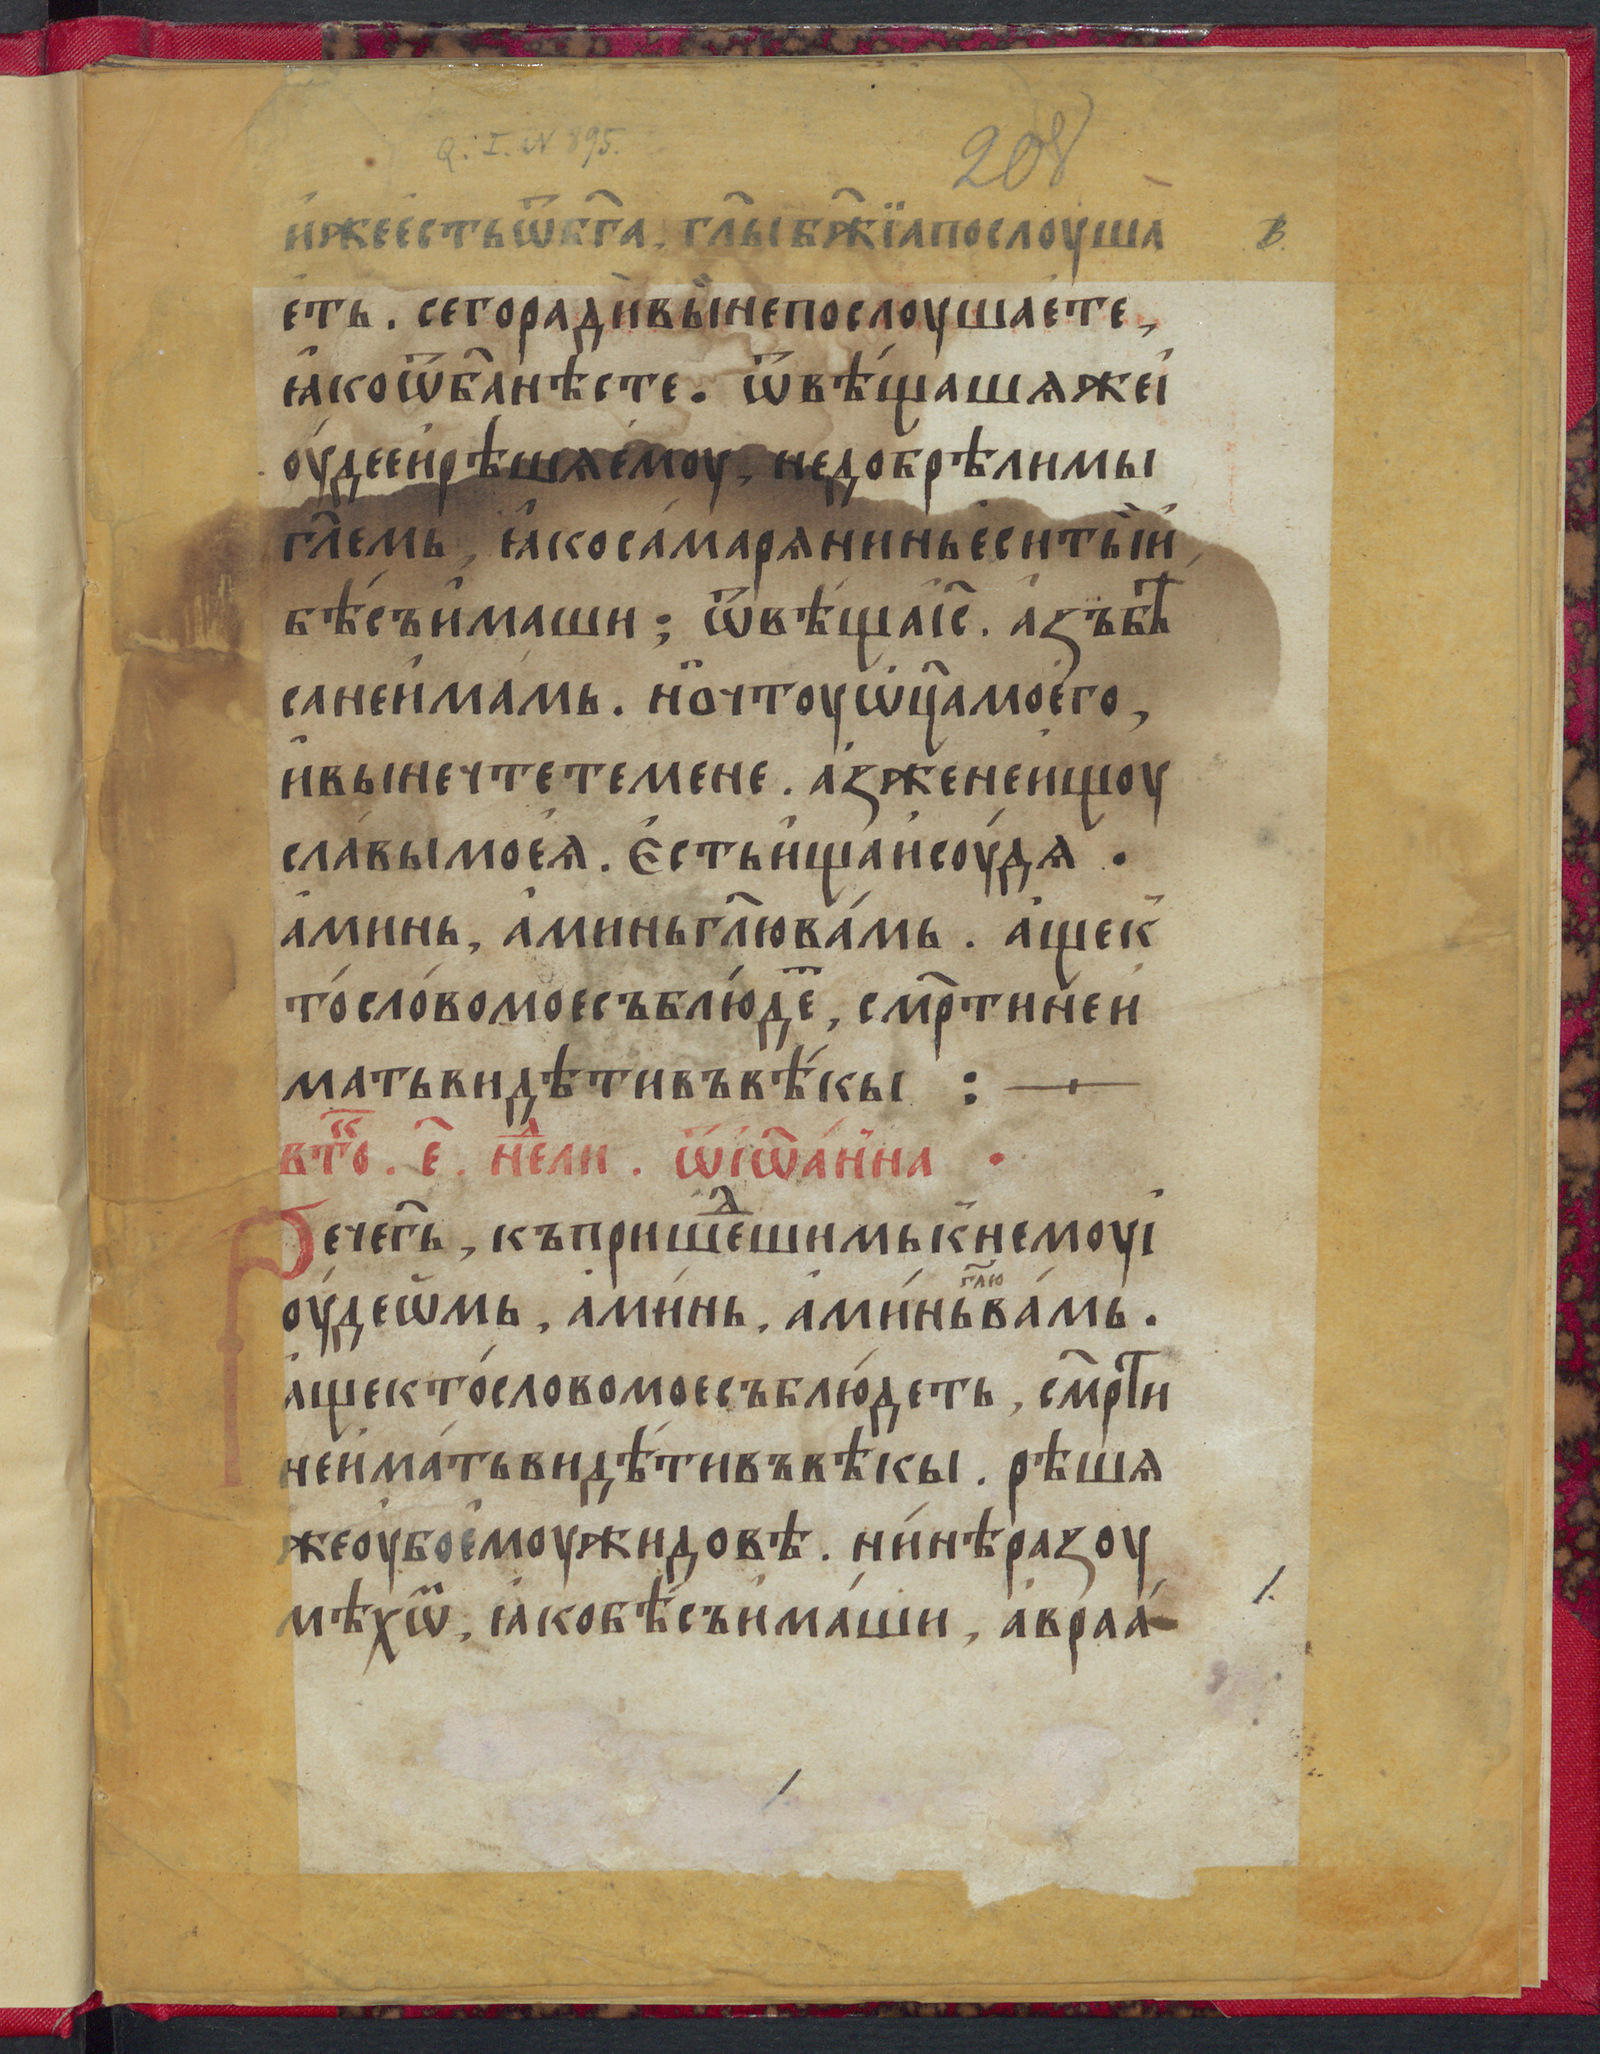 Q. I. N 895.
208
и҆жеесть ѿ бг҃а, гл҃ы бж҃їа послоуша
в.
еть. сего ради вы не послоушаете,
ꙗ҆ко ѿ бг҃а нѣсте. ѿвѣщашѧ же і
оу҆дее и рѣшѧ емоу, не добрѣ ли мы
гл҃емь, ꙗ҆ко самарѧнинь еси ты и
бѣсъ имаши; ѿвѣща і҆с҃. азъ бѣ
са не имамь. нѡ чтоу ѡц҃а моего,
и вы не чтете мене. аз же не ищоу
славы моеѧ. Есть ища и соудѧ .
аминь, аминь гл҃ю вамь. аще к
то слово мое съблюде, смр҃ти не и
мать видѣти въ вѣкы :
вто. е҃. нд҃ели. ѿ іѡанна .
Рече гь҃, къ пришедшимь к немоу і
оу҆деѡмь, аминь, аминь гл҃ю вамь.
аще кто слово мое съблюдеть, смр҃ти
не имать видѣти въ вѣкы. рѣшѧ
же оубо емоу жидовѣ. нн҃ѣ разоу
мѣхѡ, ꙗ҆ко бѣсъ имаши, авраа